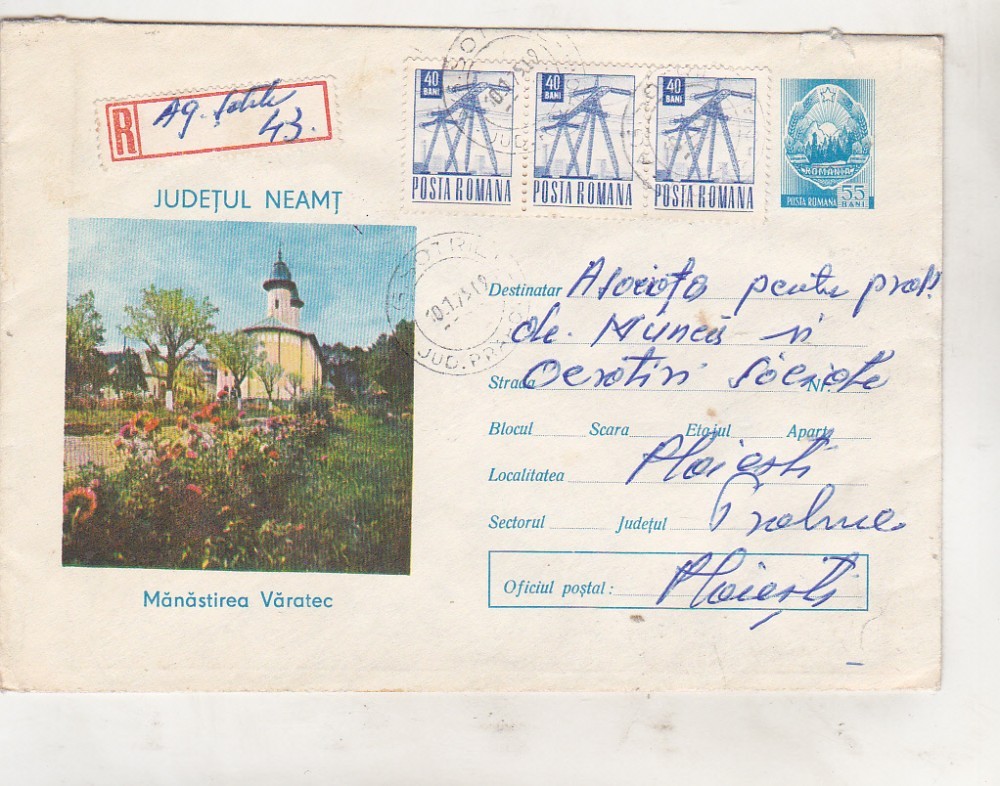 R Ag. 43.
40 BANI 40 BANI 40 BANI
POSTA ROMANA POSTA ROMANA POSTA ROMANA
ROMANIA
POSTA ROMANA 55 BANI
JUDEȚUL NEAMȚ
10.1.75.19
JUD. PRAHOVA
Destinatar pentru
de Muncă și
Strada Nr.
Blocul Scara Etajul Apart.
Localitatea Ploiești
Sectorul Județul Prahova
Oficiul poștal: Ploiești
Mănăstirea Văratec